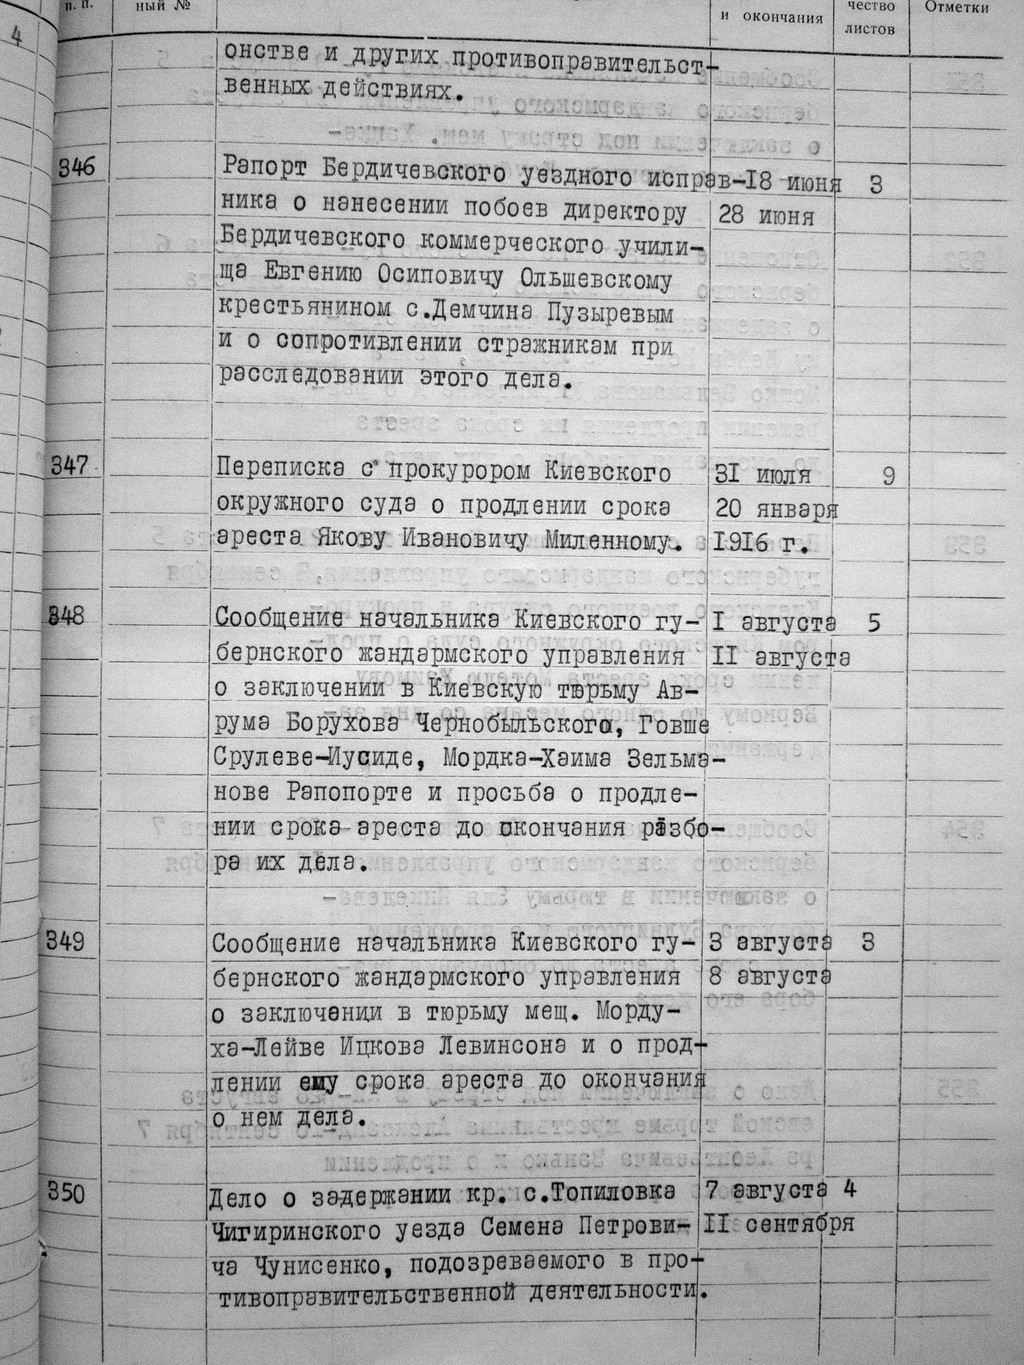 п. п. ный № и окончания чество листов Отметки
4
онстве и других противоправительст-
венных действиях.
346 Рапорт Бердичевского уездного исправ- 18 июня 3
ника о нанесении побоев директору 28 июня
Бердичевского коммерческого учили-
ща Евгению Осиповичу Ольшевскому
крестьянином с.Демчина Пузыревым
и о сопротивлении стражникам при
расследовании этого дела.
347 Переписка с прокурором Киевского 31 июля 9
окружного суда о продлении срока 20 января
ареста Якову Ивановичу Миленному. 1916 г.
348 Сообщение начальника Киевского гу- I августа 5
бернского жандармского управления II августа
о заключении в Киевскую тюрьму Ав-
рума Борухова Чернобыльского, Говше
Срулеве-Иусиде, Мордка-Хаима Зельма-
нове Рапопорте и просьба о продле-
нии срока ареста до окончания разбо-
ра их дела.
349 Сообщение начальника Киевского гу- 3 августа 3
бернского жандармского управления 8 августа
о заключении в тюрьму мещ. Морду-
ха-Лейве Ицкова Левинсона и о прод-
лении ему срока ареста до окончания
о нем дела.
350 Дело о задержании кр. с.Топиловка 7 августа 4
Чигиринского уезда Семена Петрови- II сентября
ча Чунисенко, подозреваемого в про-
тивоправительственной деятельности.